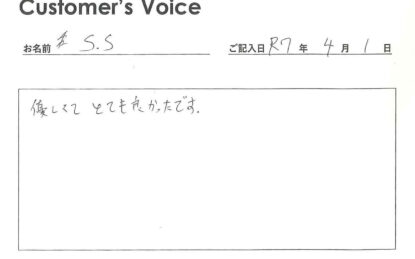 Customer's Voice
お名前 S.S ご記入日 R7 年 4 月 1 日
優しくて とても良かったです。